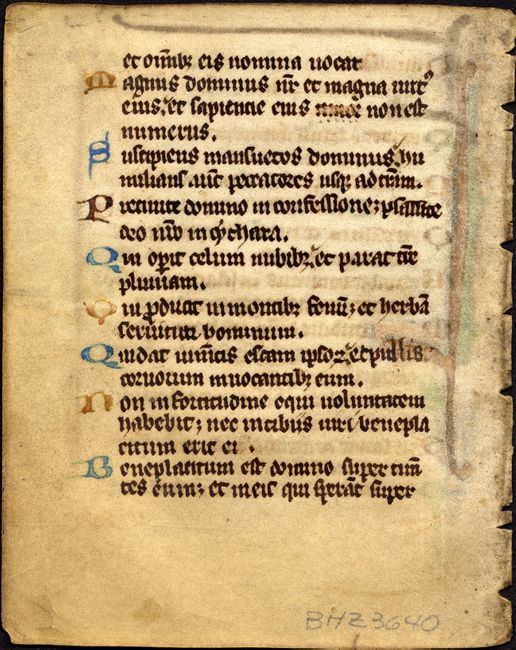 et omībꝫ eis nomina uocat
Magnus dominus nr̄ et magna uirtꝰ
eius: et sapientie eius non est
numerus.
Suscipiens mansuetos dominus: hu
milians aut̄ peccatores usqꝫ ad trām.
Precinite domino in confessione: psallite
deo nr̄o in cythara.
Qui operit celum nubibꝫ: et parat tr̄e
pluuiam.
Qui producit in montibꝫ fenū: et herbā
seruituti hominum.
Qui dat iumētis escam ipsoꝝ: et pullis
coruorum inuocantibꝫ eum.
Non in fortitudine equi uoluntatem
habebit: nec in tibiis uiri benepla
citum erit ei.
Beneplacitum est domino super timē
tes eum: et in eis qui sperāt super
BHZ3640